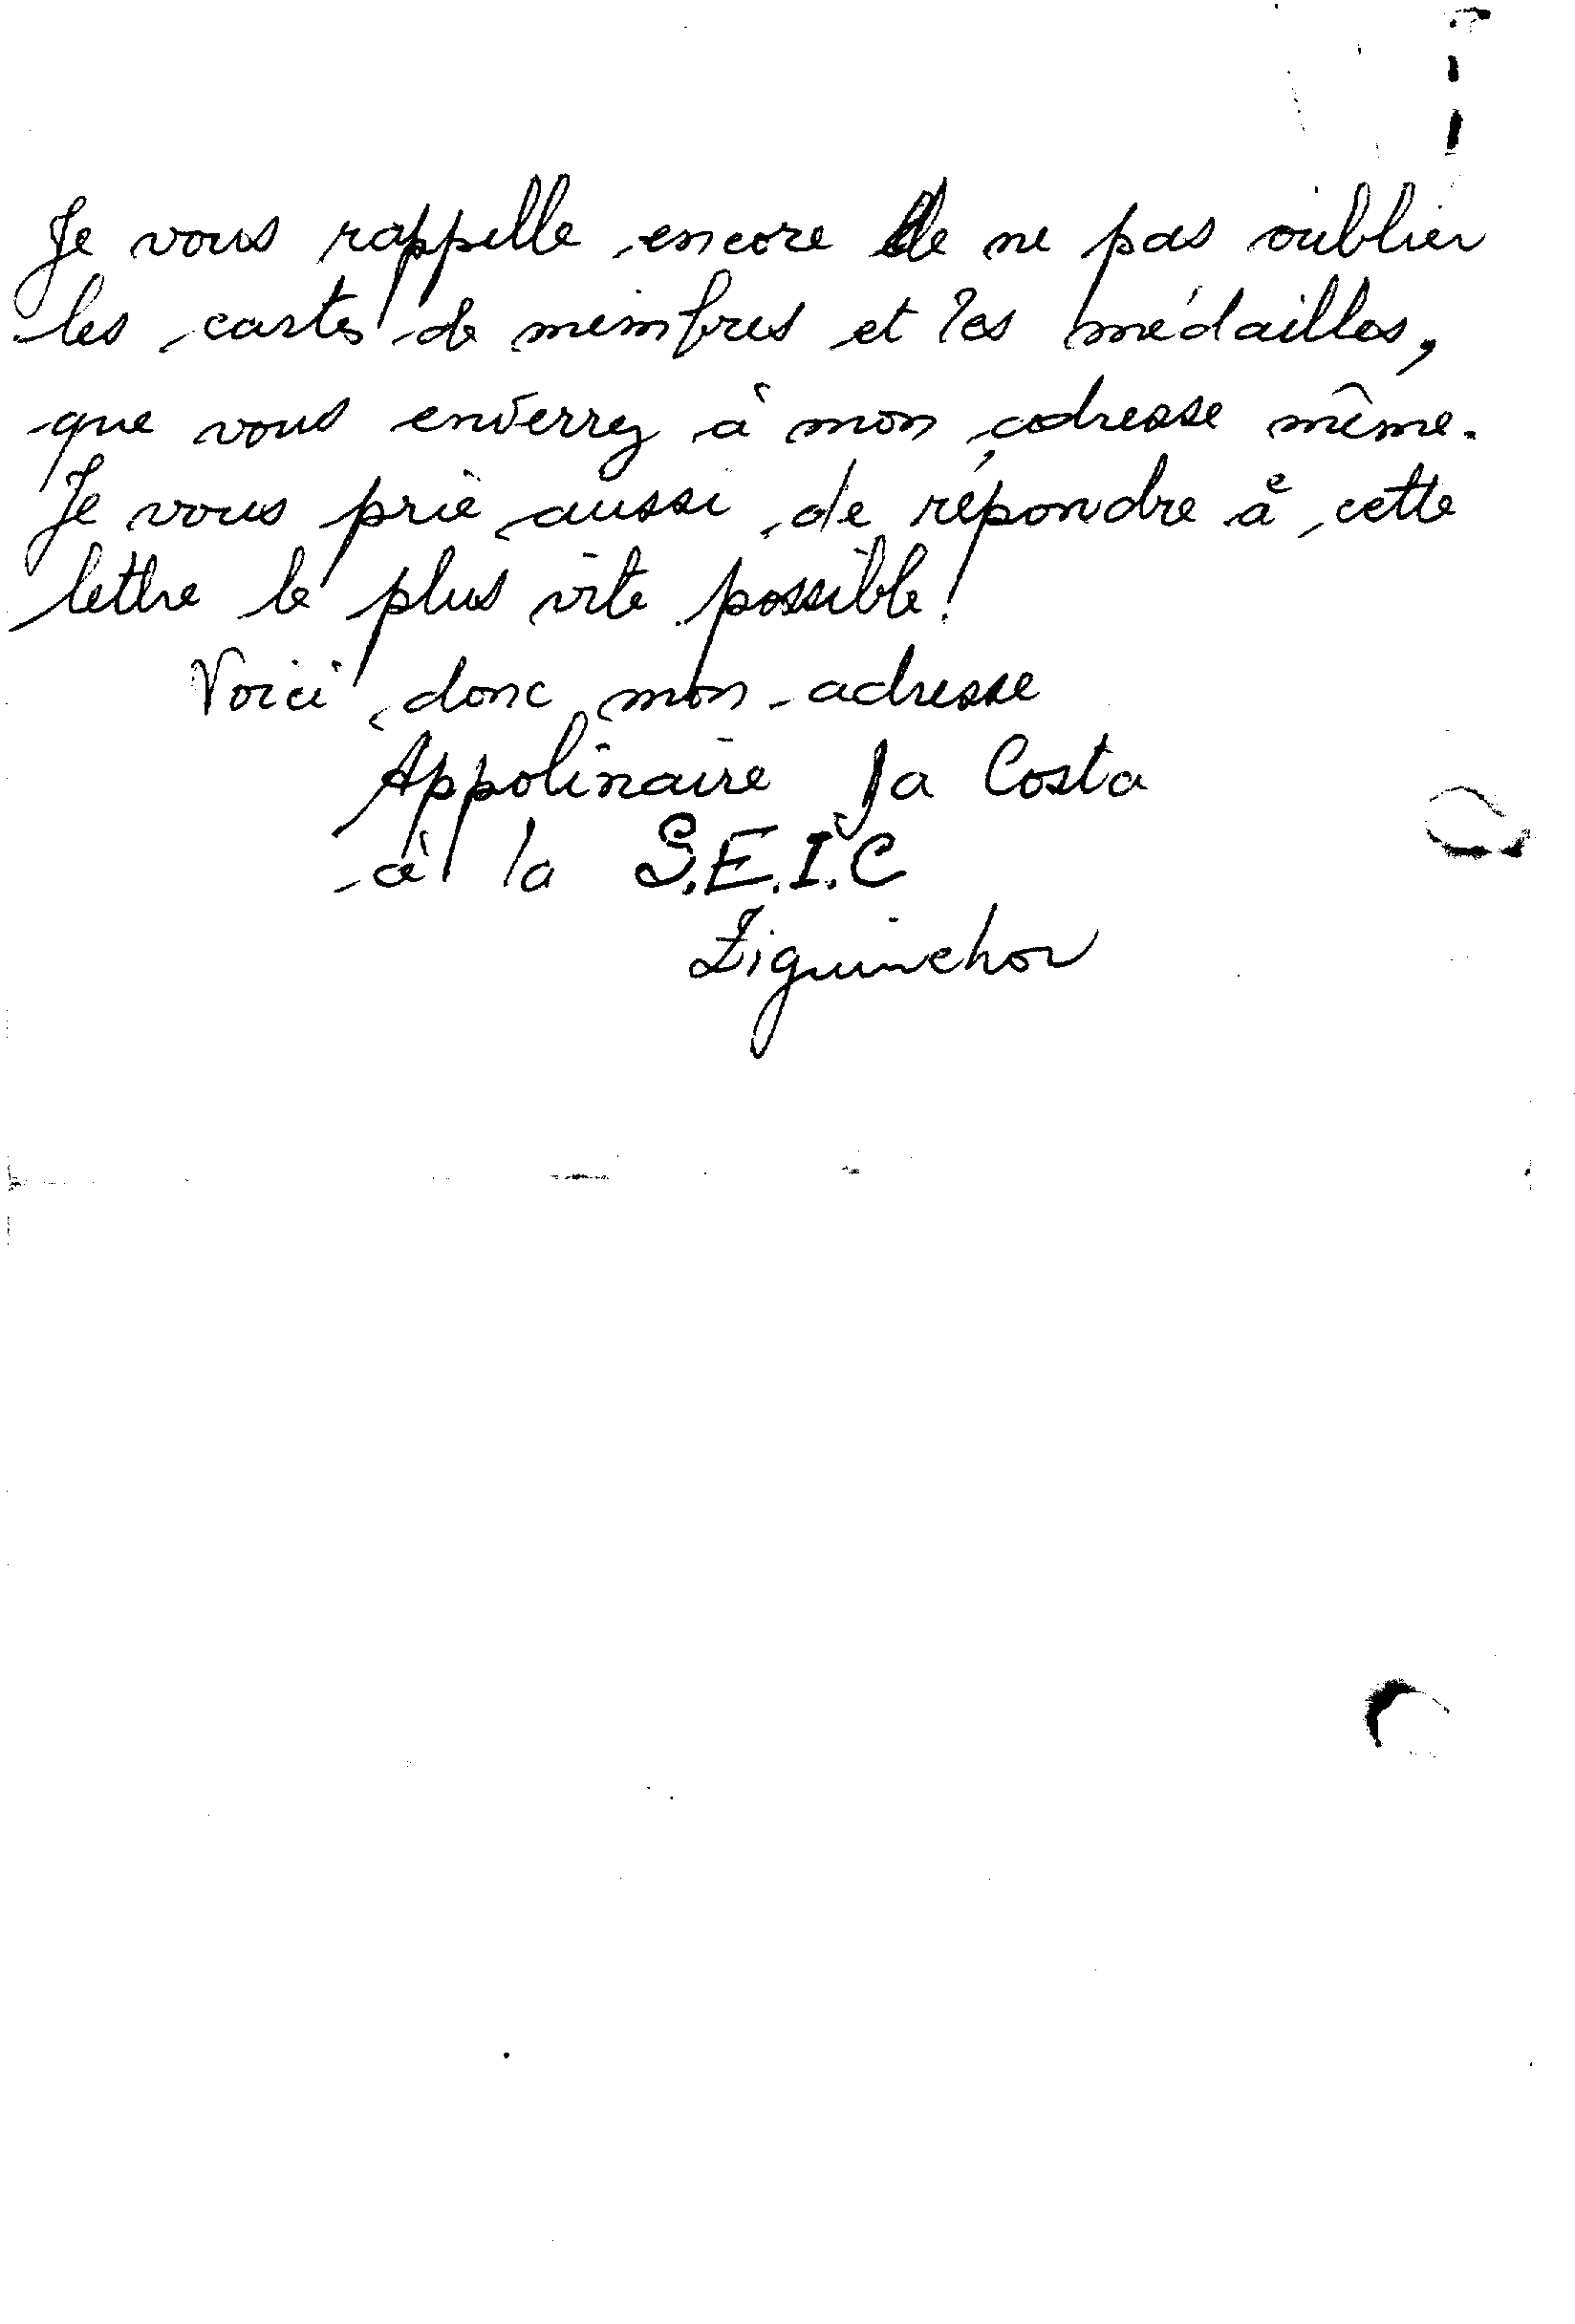 Je vous rappelle encore de ne pas oublier
les cartes de membres et les médailles,
que vous enverrez à mon adresse même.
Je vous prie aussi de répondre à cette
lettre le plus vite possible!
Voici donc mon adresse
Appolinaire Ja Costa
à la S.E.I.C
Ziguinchor